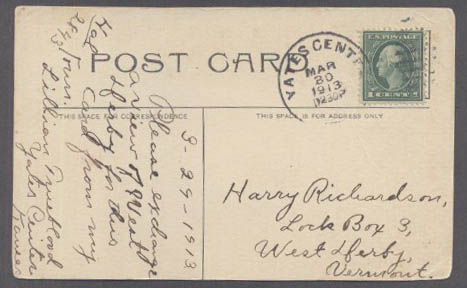 POST CARD
YATES CENTE
MAR
30
1913
1230P
U.S. POSTAGE
1 CENT 1
THIS SPACE IS FOR CORRESPONDENCE
THIS SPACE IS FOR ADDRESS ONLY
3-29-1913
Please exchange
a view of West
Derby for this
Card from my
Town.
Lillian Trueblood
Yates Center
Kansas
Harry Richardson,
Lock Box 3,
West Derby,
Vermont.